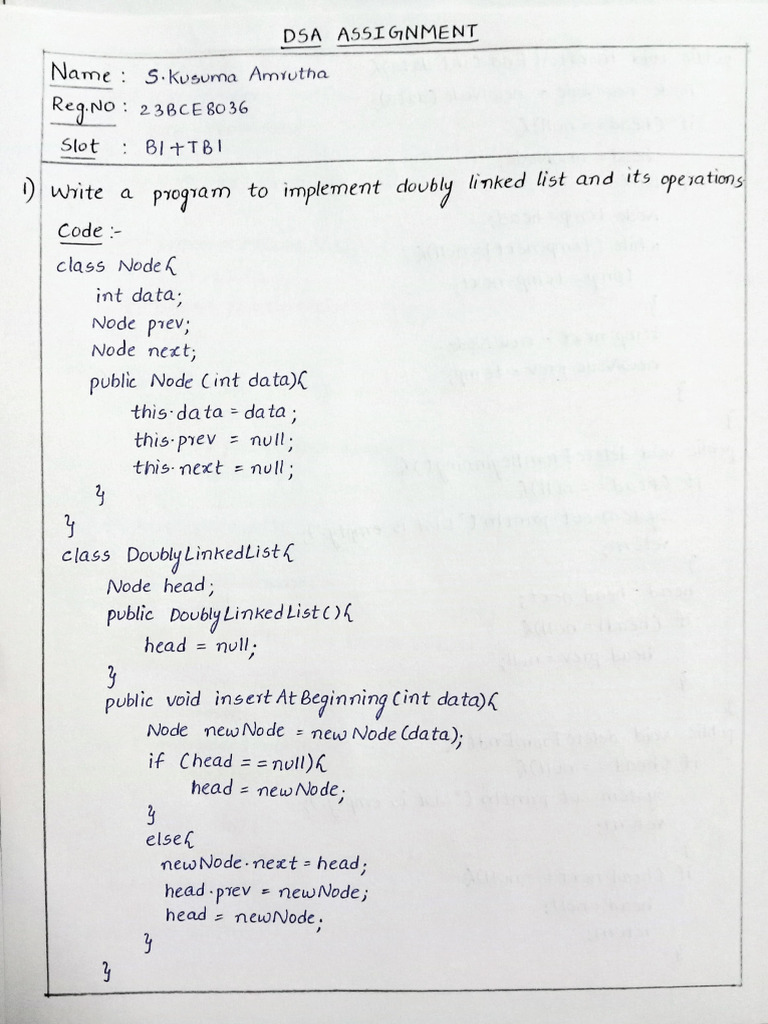 DSA ASSIGNMENT
Name : S.Kusuma Amrutha
Reg.No : 23BCE8036
Slot : B1+TB1
1) Write a program to implement doubly linked list and its operations
Code :-
class Node{
int data;
Node prev;
Node next;
public Node (int data){
this.data = data;
this.prev = null;
this.next = null;
}
}
class DoublyLinkedList{
Node head;
public DoublyLinkedList(){
head = null;
}
public void insertAtBeginning(int data){
Node newNode = new Node(data);
if (head == null){
head = newNode;
}
else{
newNode.next = head;
head.prev = newNode;
head = newNode;
}
}